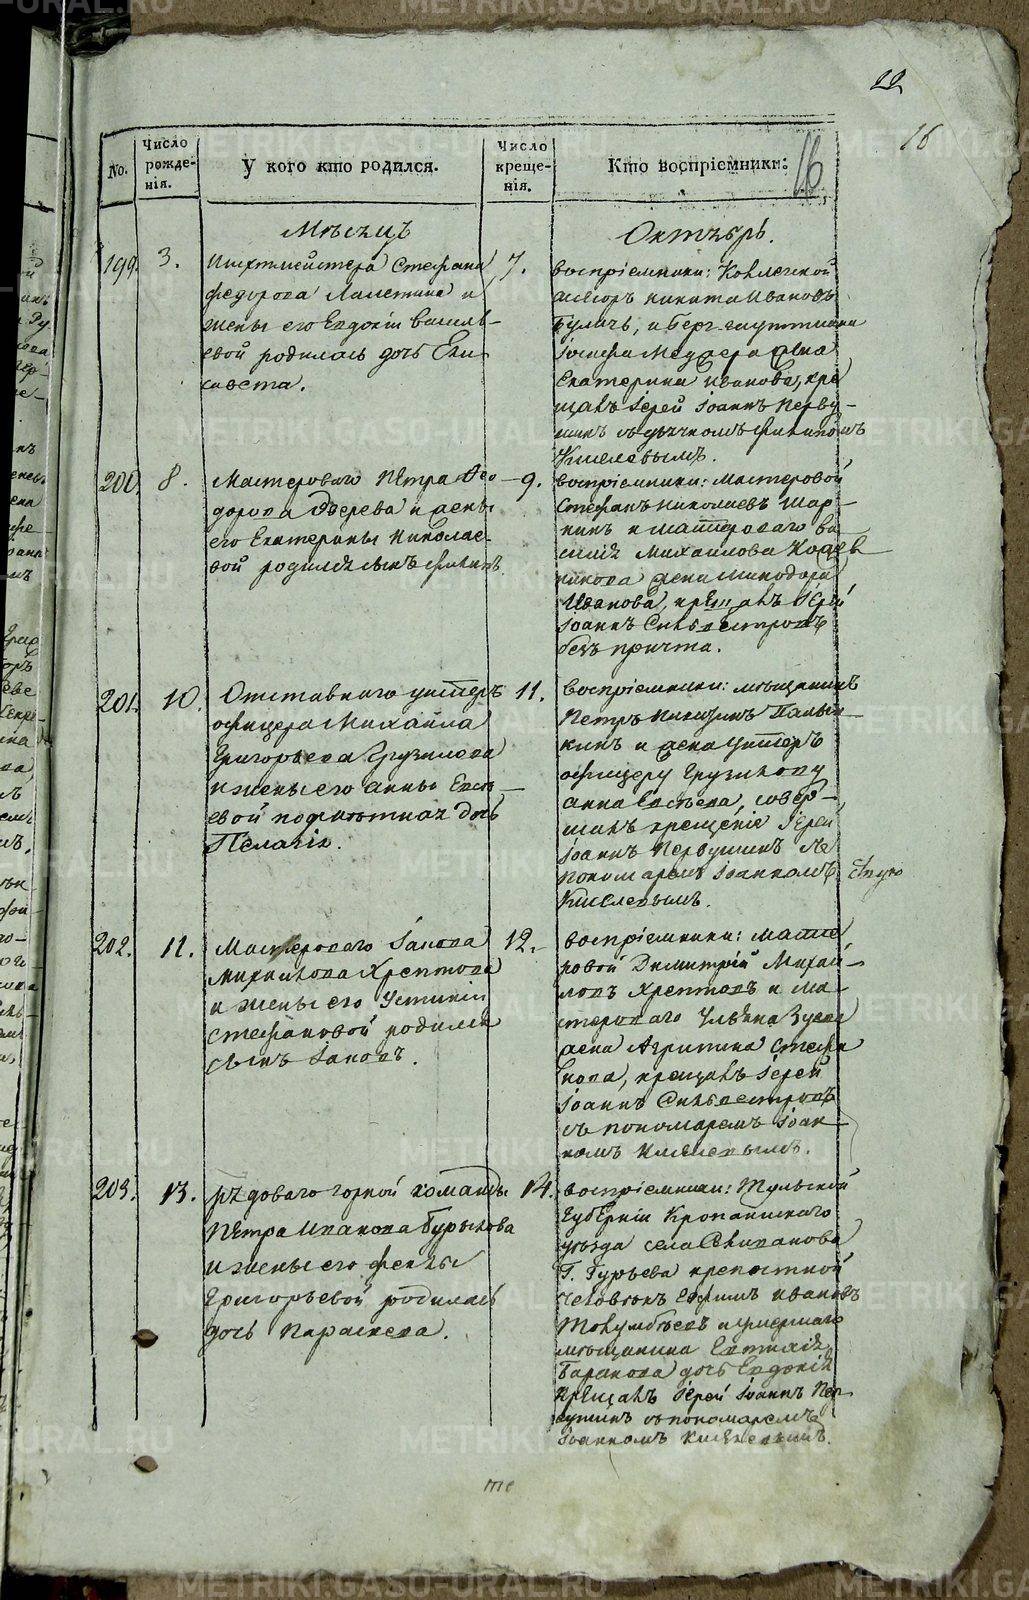 22
16
No.
Число рожде-нія.
У кого кто родился.
Число креще-нія.
Кто воспріемники:
16
Мѣсецъ
Октябрь.
199. 3.
Шихтмейстера Стефана
Федорова Лалетина и
жены его Евдокіи Василь-
евой родилась дочь Ели-
савета.
7.
воспріемники: Коллежской
асесоръ Никита Ивановъ
и Берг
Іосифа жена
Екатерина Иванова, кре
щалъ Іерей Іоаннъ Перву-
шинъ съ дьячкомъ Филипомъ
Киселевымъ.
200. 8.
Мастероваго Петра Фео
дорова Зверева и жены
его Екатерины Николае-
вой родился сынъ Филипъ.
9.
воспріемники: мастеровой
Стефанъ Николаевъ Шар-
кинъ и мастероваго Ва
силія Михаилова Кожев
никова жена Минодора
Иванова, крещалъ Іерей
Іоаннъ Сильвестровъ
безъ причта.
201. 10.
Отставнаго унтеръ
офицера Михайла
Григорьева Грузилова
и жены его Анны Евсе-
вой дочь
Пелагія.
11.
воспріемники: мѣщанинъ
Петръ Никитинъ Палки-
кинъ и жена унтеръ
офицера
Анна Евсѣева, совер-
шилъ крещеніе Іерей
Іоаннъ Первушинъ съ
пономаремъ Іоанномъ
Киселевымъ.
202. 11.
Мастероваго Іакова
Михайлова Хрептова
и жены его Устиніи
Стефановой родился
сынъ Іаковъ.
12.
воспріемники: масте
ровой Димитрій Михай-
ловъ Хрептовъ и ма-
стероваго Ульяна Зуева
жена Агрипина Стефа
нова, крещалъ Іерей
Іоаннъ Сильвестровъ
съ пономаремъ Іоан-
номъ Киселевымъ.
203. 13.
рядоваго горной команды
Петра Иванова Бурыкова
и жены его Феклы
Григорьевой родилась
дочь Параскева.
14.
воспріемники: Тульской
Губерніи Кропанискаго
уѣзда села Селиванова
Г. Гурьева крепостной
человѣкъ Ефимъ Ивановъ
и умершаго
мѣщанина
Баранова дочь Евдокія
крещалъ Іерей Іоаннъ Пер-
вушинъ съ пономаремъ
Іоанномъ Киселевымъ.
METRIKI.GASO-URAL.RU